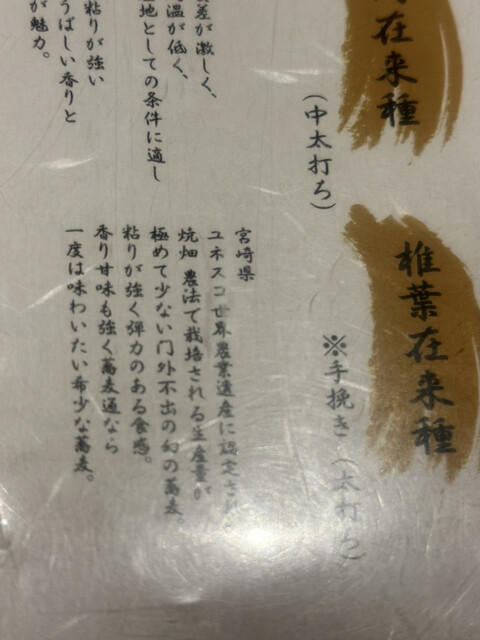 在来種
(中太打ち)
差が激しく、
温が低く、
地としての条件に適し
粘りが強い
うばしい香りと
が魅力。
椎葉在来種
※手挽き (太打ち)
宮崎県
ユネスコ世界農業遺産に認定され
焼畑 農法で栽培される生産量が
極めて少ない門外不出の幻の蕎麦。
粘りが強く弾力のある食感。
香り甘味も強く蕎麦通なら
一度は味わいたい希少な蕎麦。